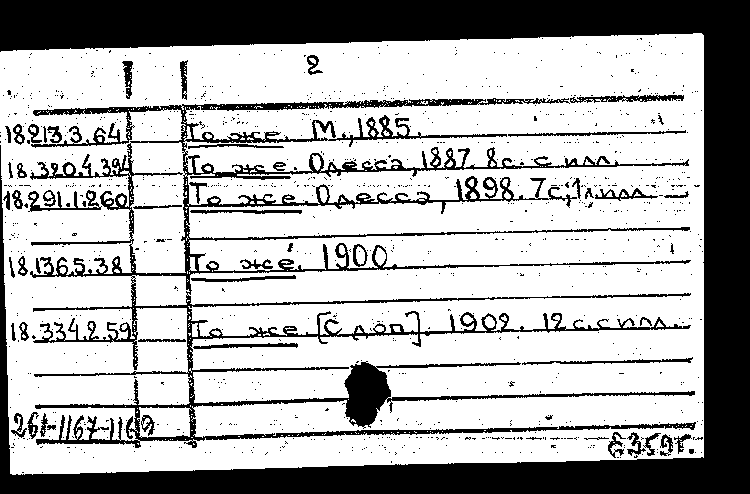 2
18.213.3.64 То же. М., 1885.
18.320.4.394 То же. Одесса, 1887. 8с. с илл.
18.291.1.260 То же. Одесса, 1898. 7с; 1л.илл.
18.136.5.38 То же. 1900.
18.334.2.59 То же. [С доп]. 1902. 12 с. с илл.
261-1167-1169